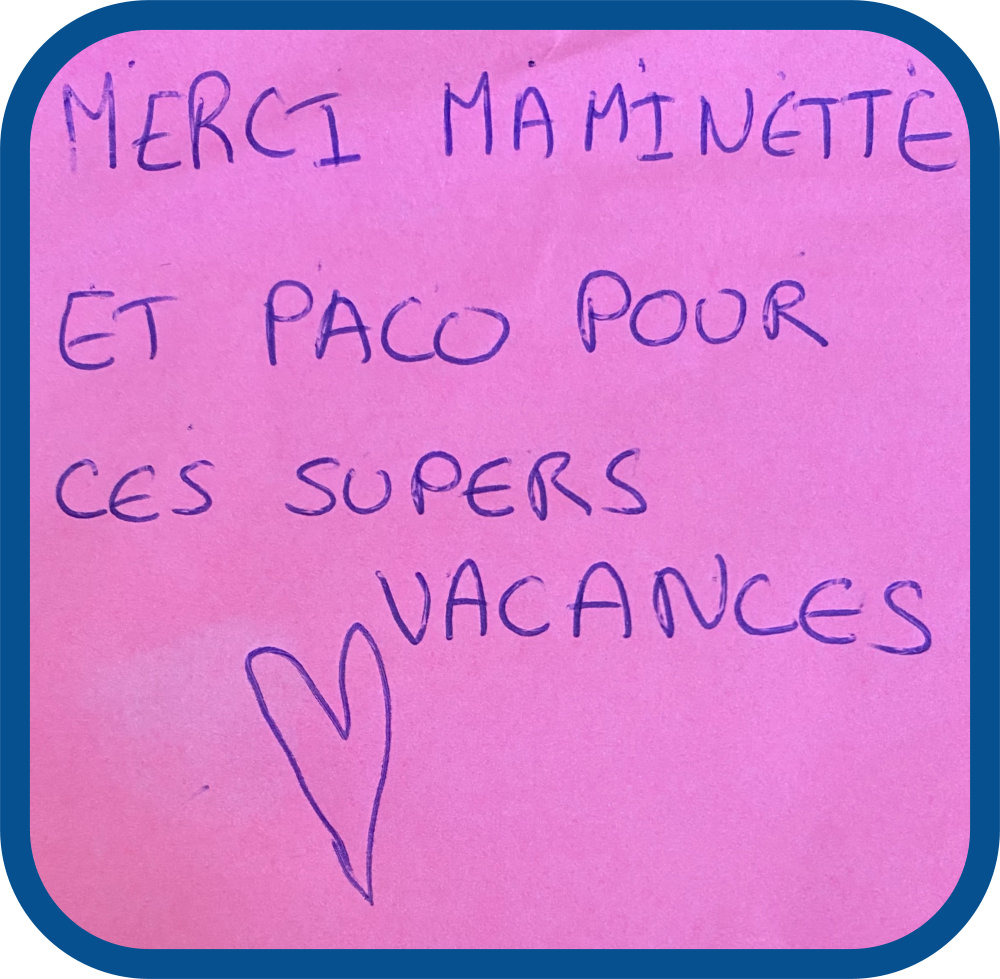 MERCI MAMINETTE
ET PACO POUR
CES SUPERS
VACANCES